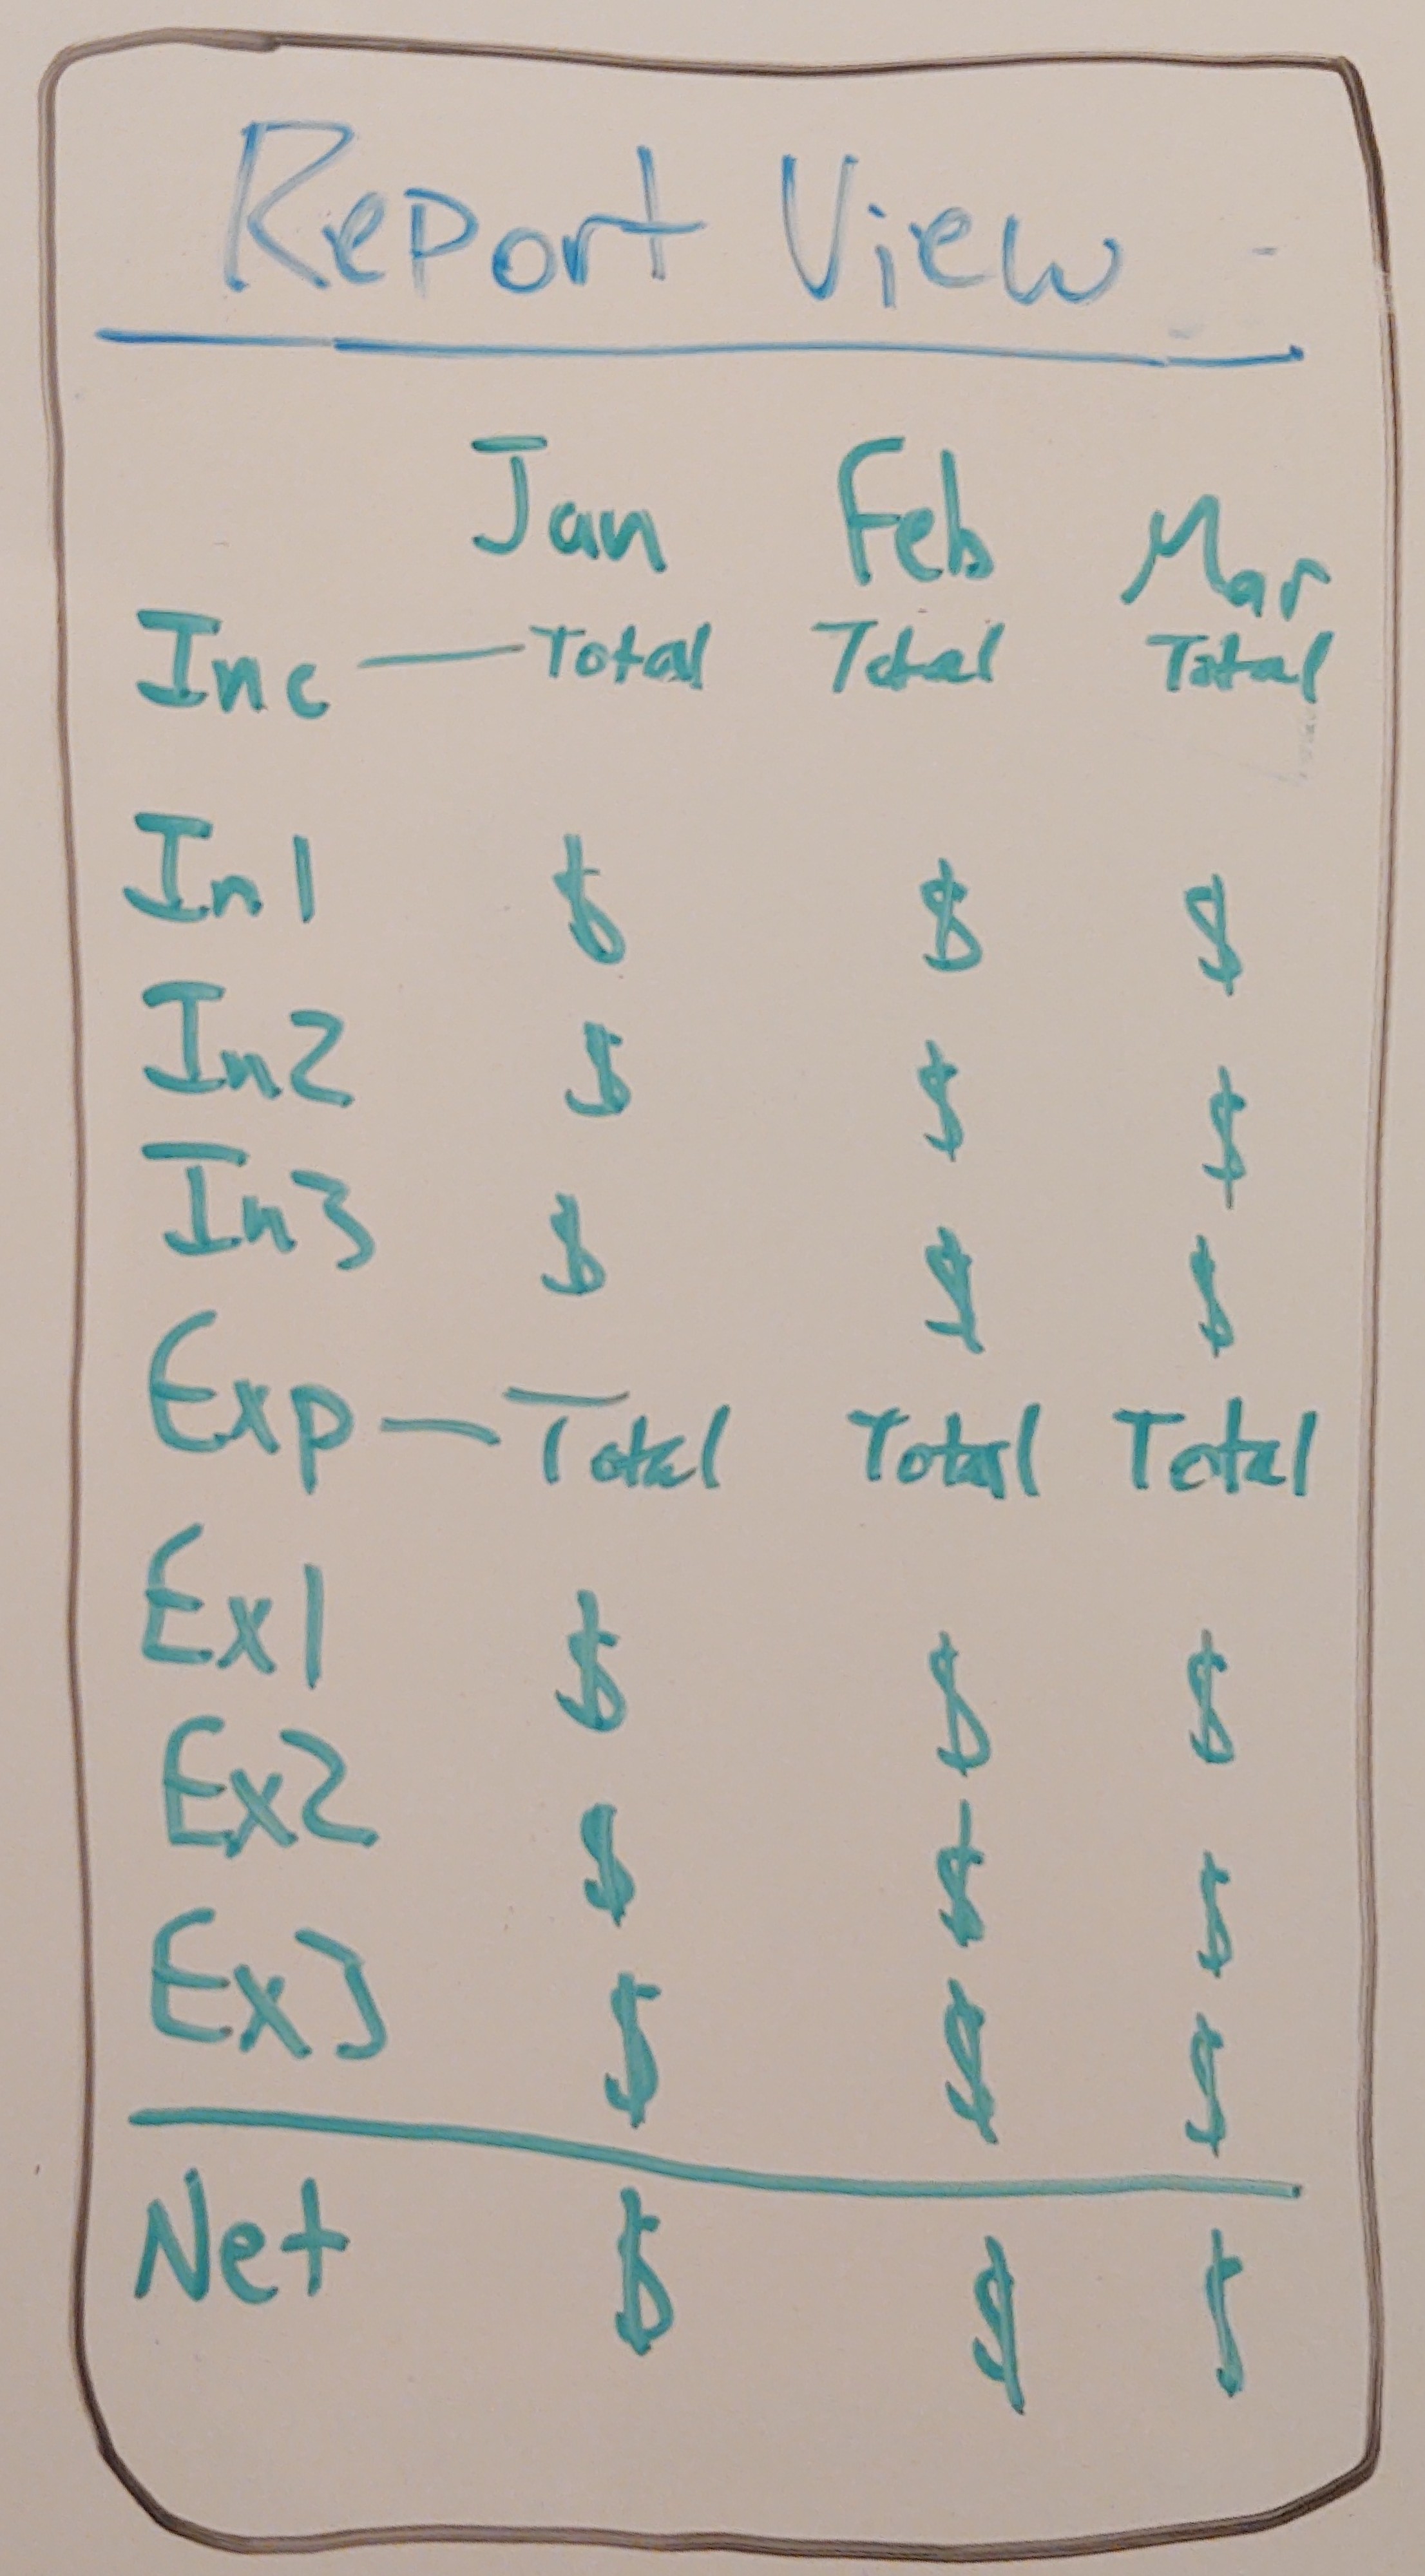 Report View
Jan Feb Mar
Inc — Total Total Total
In1 $ $ $
In2 $ $ $
In3 $ $ $
Exp — Total Total Total
Ex1 $ $ $
Ex2 $ $ $
Ex3 $ $ $
Net $ $ $